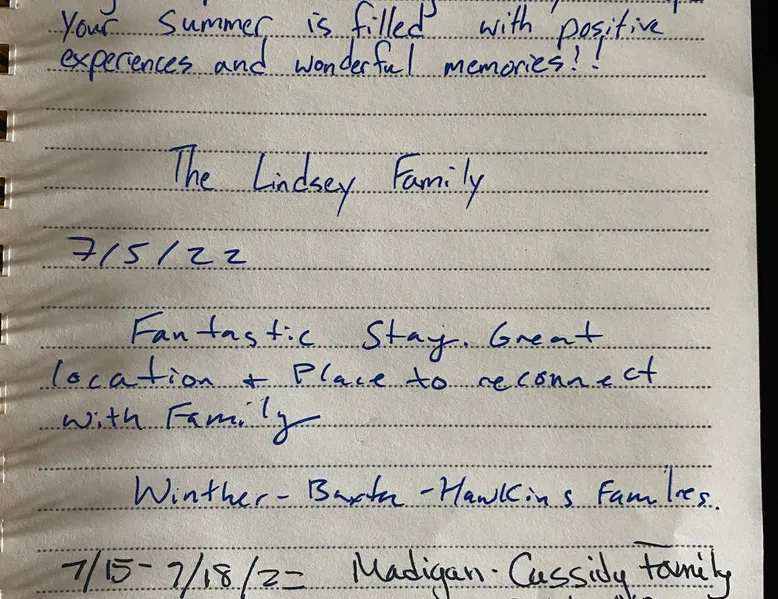 Your Summer is filled with positive
experiences and wonderful memories!!
The Lindsey Family
7/5/22
Fantastic Stay. Great
location + Place to reconnect
with Family
Winther - Baxter - Hawkins Families.
7/15 - 7/18/22 Madigan - Cassidy family